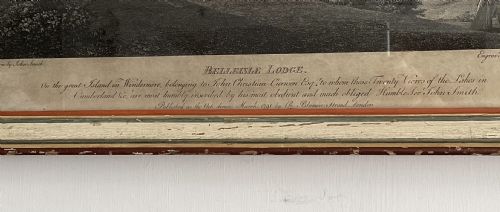 by John Smith
Engrav
BELLEISLE LODGE.
On the great Island in Windermere, belonging to John Christian Curwen Esqr. to whom these Twenty Views of the Lakes in
Cumberland &c. are most humbly inscribed by his most obedient and much obliged Humble Servt. John Smith.
Published as the Act directs March 1791 by Strand London